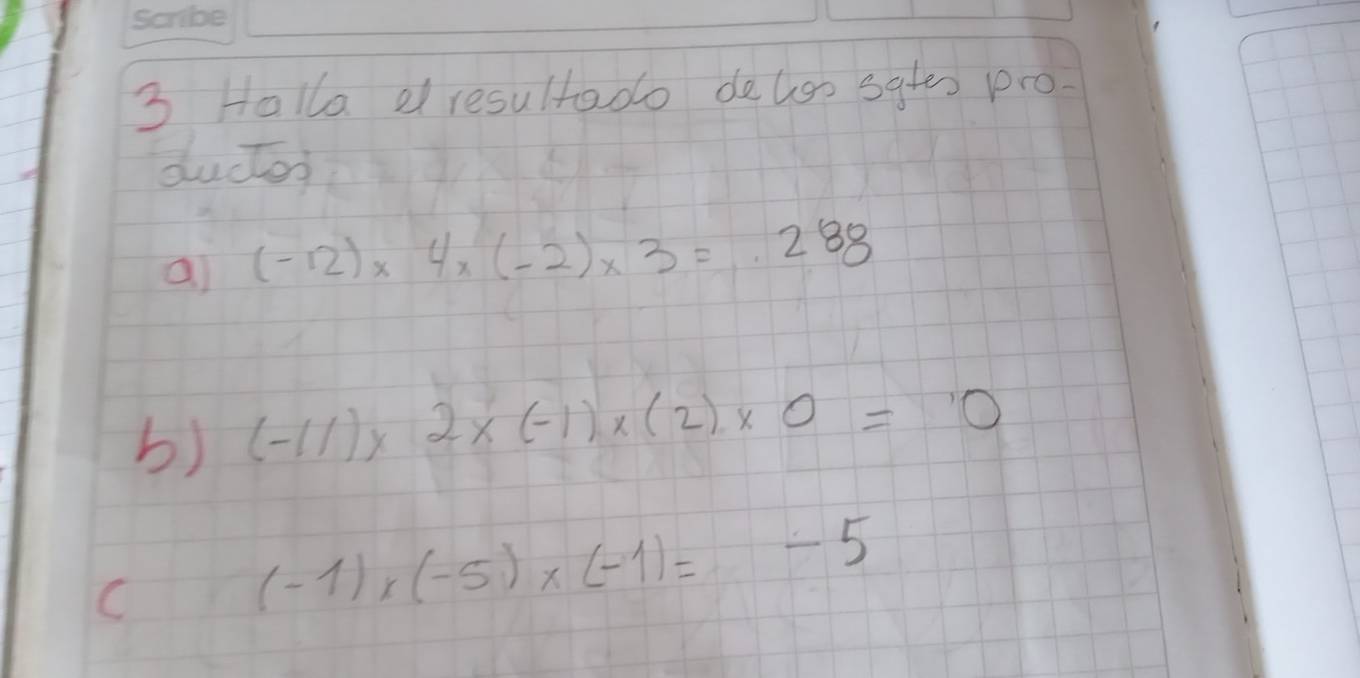 Scribe
3 Halla el resultado de los sgtes pro-
ductos
a) (-12) x 4 x (-2) x 3 = 288
b) (-11) x 2 x (-1) x (2) x 0 = 0
c (-1) x (-5) x (-1) = -5